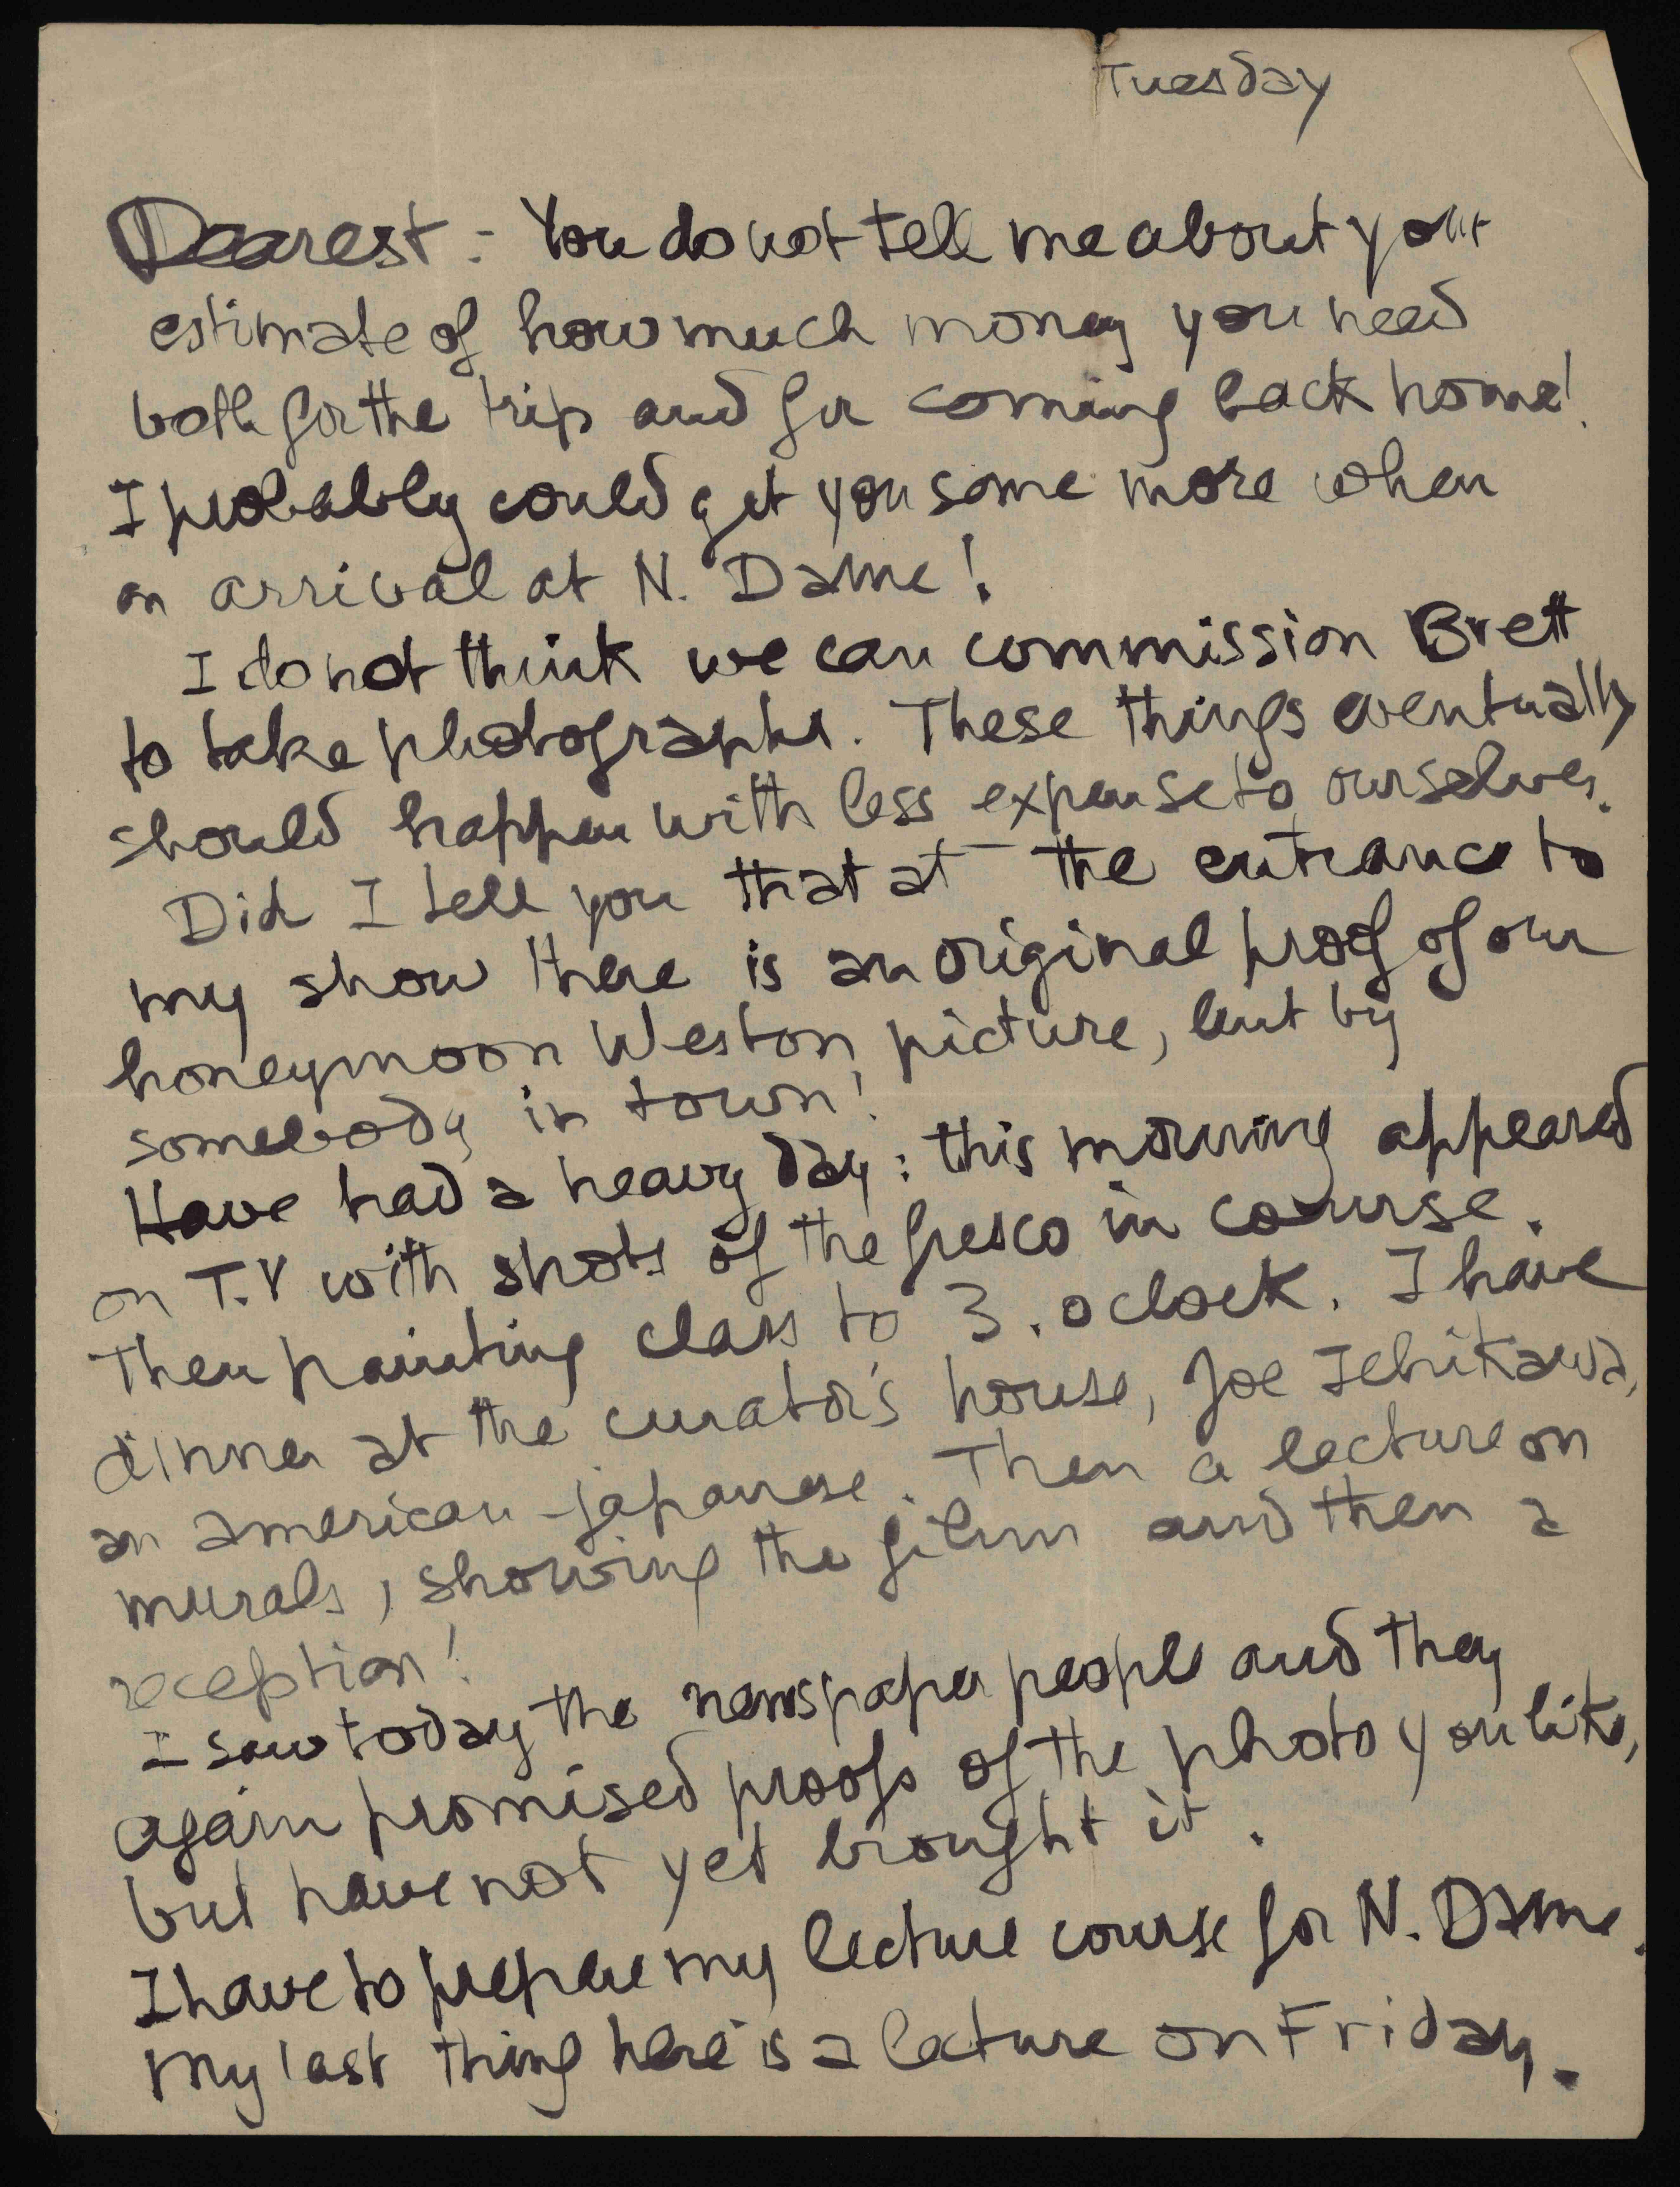 Tuesday
Dearest - You do not tell me about your
estimate of how much money you need
both for the trip and for coming back home!
I probably could get you some more when
on arrival at N. Dame!
I do not think we can commission Brett
to take photographs. These things eventually
should happen with less expense to ourselves.
Did I tell you that at the entrance to
my show there is an original proof of our
honeymoon Weston picture, lent by
somebody in town!
Have had a heavy day: this morning appeared
on T.V with shots of the fresco in course.
Then painting class to 3. o clock. I have
dinner at the curator's house, Joe Ichikawa,
an american-japanese. Then a lecture on
murals, showing the film and then a
reception!
I saw today the newspaper people and they
again promised proofs of the photo you like,
but have not yet brought it.
I have to prepare my lecture course for N. Dame.
My last thing here is a lecture on Friday.